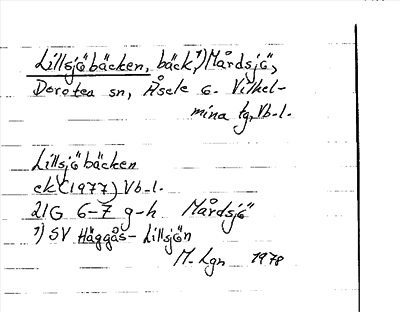 Lillsjöbäcken, bäck,¹) Mårdsjö,
Dorotea sn, Åsele o. Vilhel-
mina tg, Vb-l.
Lillsjöbäcken
ek (1977) Vb-l.
21G 6-7 g-h Mårdsjö
¹) SV Häggås- Lillsjön
M. Lgn 1978